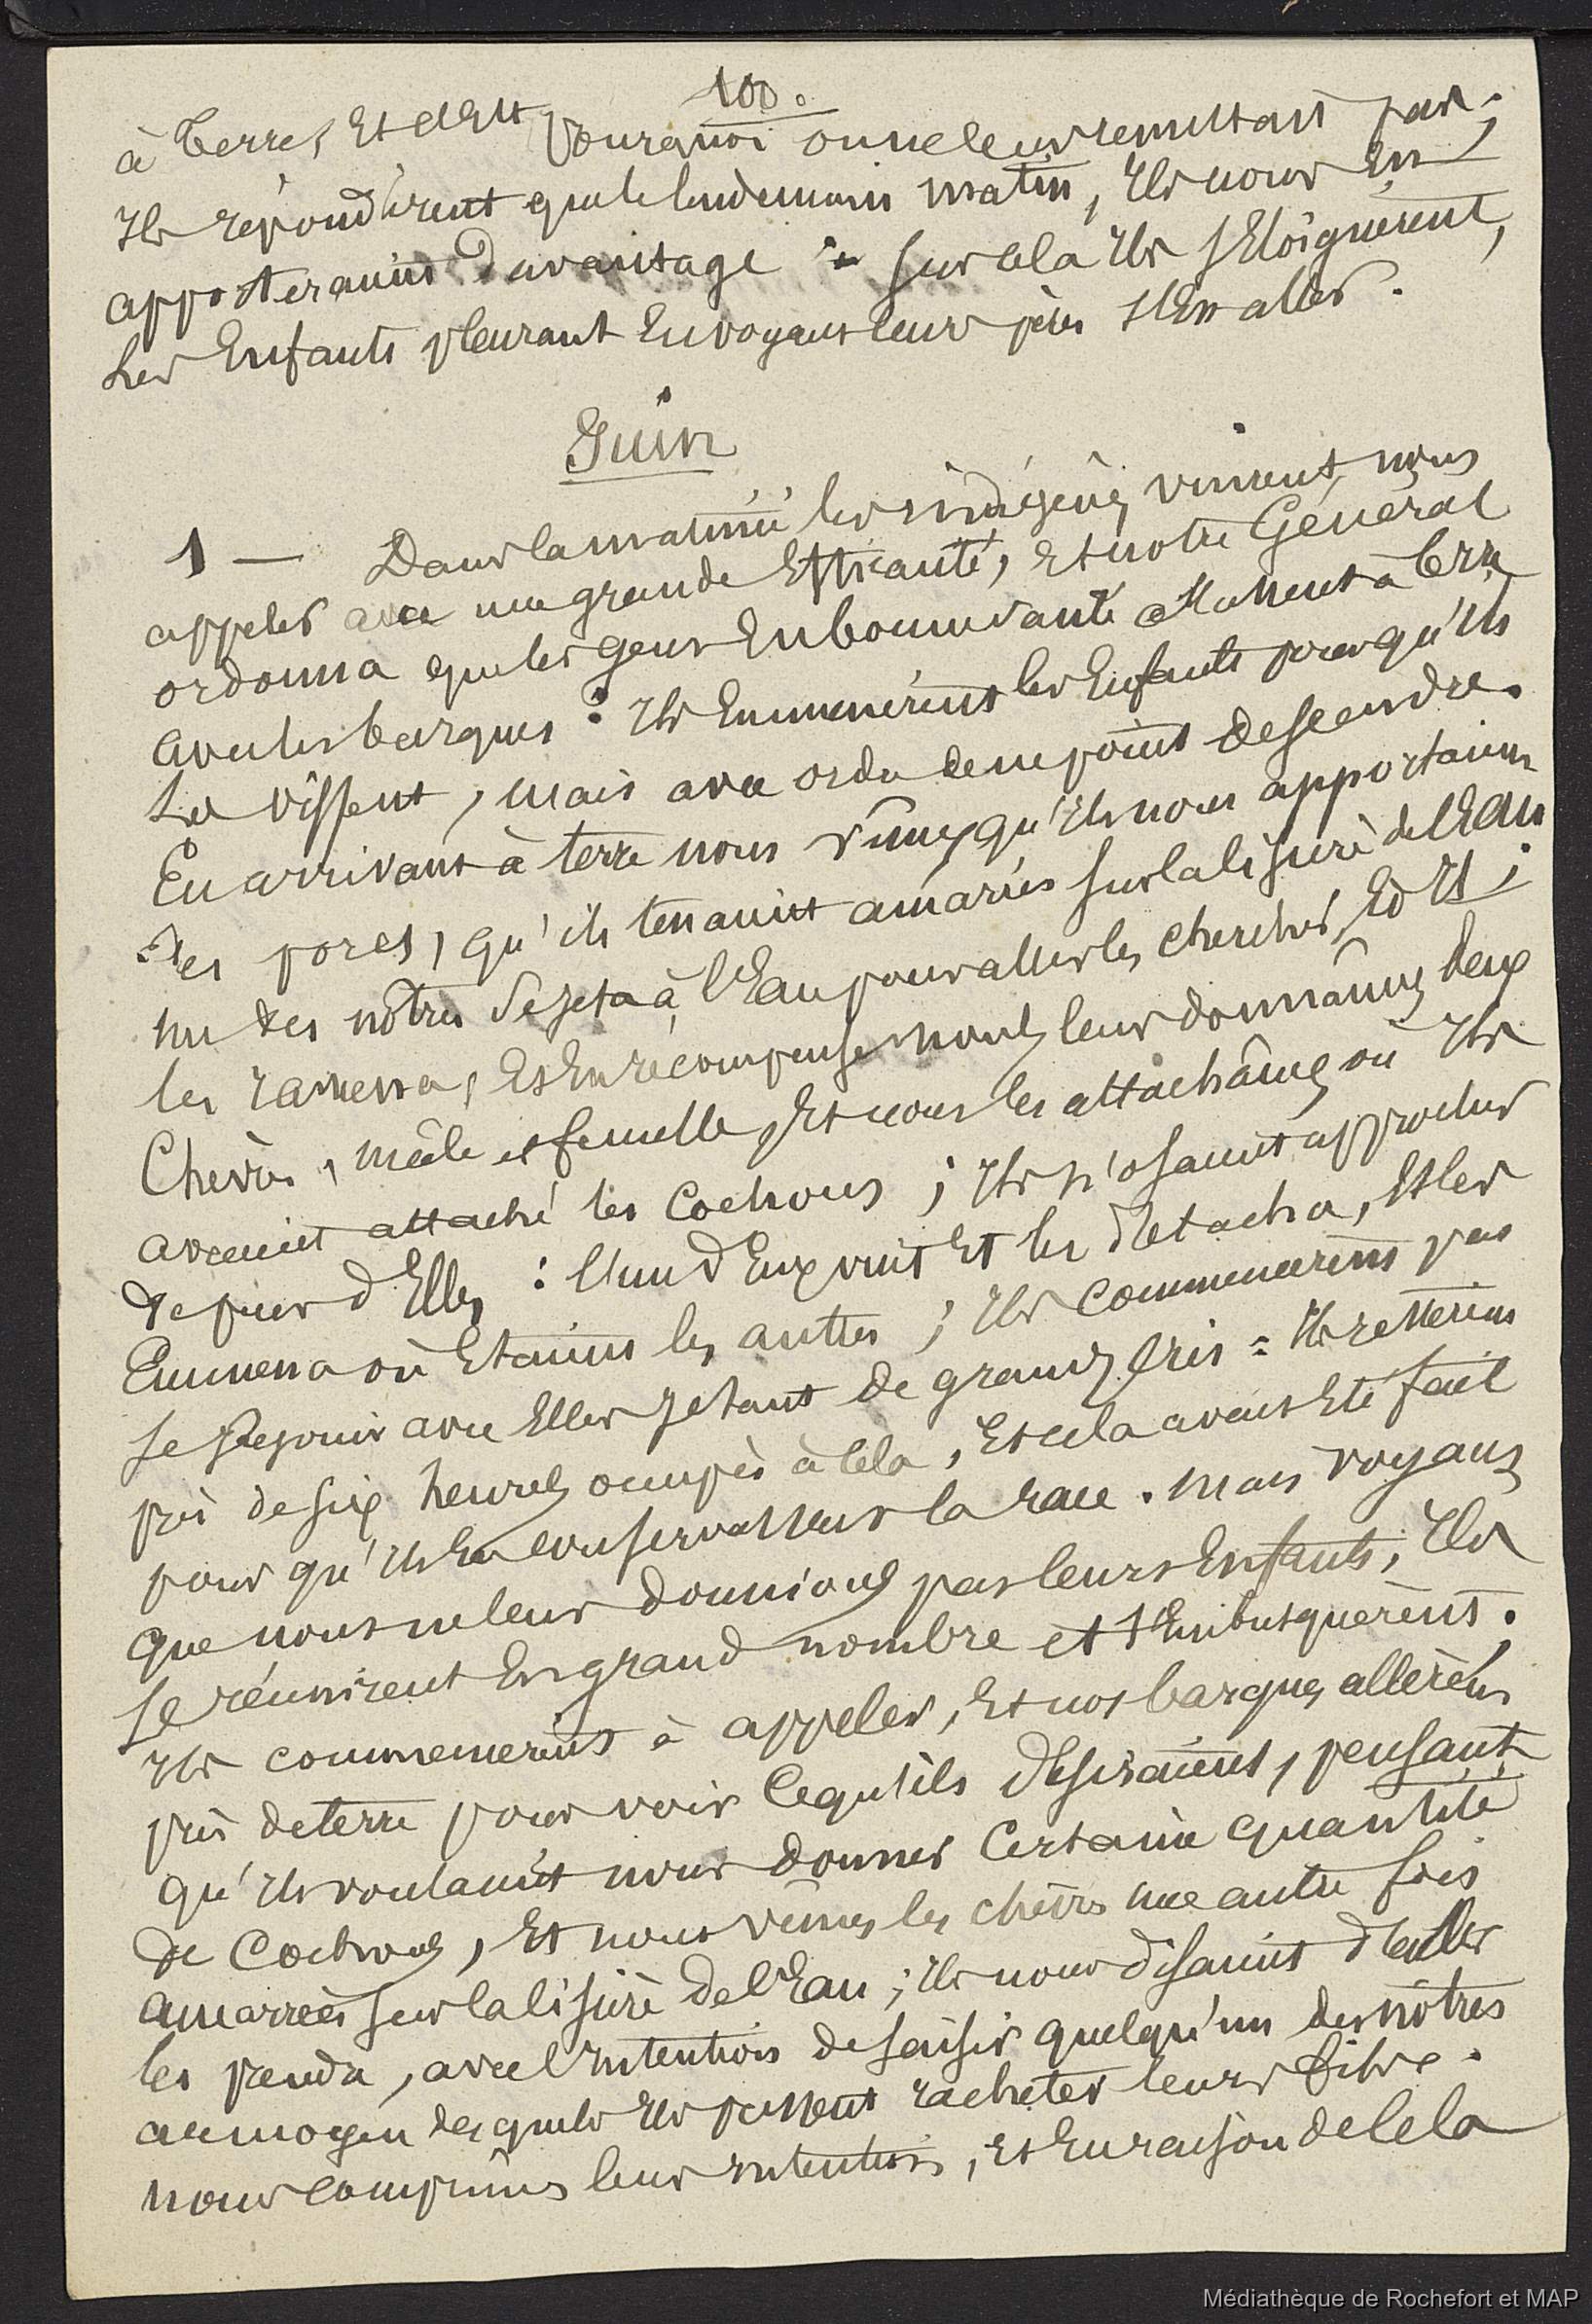 100.
à terre, et dett pourquoi on ne leur remettait pas;
Ils répondirent que le lendemain matin, Ils nous en
apporteraient davantage : sur cela Ils s'Eloignèrent,
Les Enfants pleurant En voyant leurs pères s'En aller.
Juin
1 — Dans la matinée les indigènes vinrent nous
appeler avec une grande Efficauté, et notre Général
ordonna que les gens En bonne santé allassent à terre
avec les barques : Ils Emmenèrent les Enfants pour qu'Ils
les vissent, mais avec ordre de ne point descendre.
En arrivant à terre nous vîmes qu'Ils nous apportaient
des porcs, qu'ils tenaient amarrés sur la lisière de l'Eau
un des nôtres se jeta à l'Eau pour aller les chercher, Et Il
les ramena, Et En récompense nous leur donnâmes deux
Chèvres, mâle et femelle, Et nous les attachâmes où Ils
avaient attaché les Cochons ; Ils n'osaient approcher
de peur d'Elles : l'un d'Eux vint Et les détacha, Et les
Emmena où Etaient les autres ; Ils commencèrent pas
se rejouir avec Elles jetant de grands cris : Ils restèrent
près de six heures occupés à cela, Et cela avait Eté fait
pour qu'Ils En conservassent la race. Mais voyant
que nous ne leur donnions pas leurs Enfants, Ils
se réunirent En grand nombre et s'Embusquèrent.
Ils commencèrent à appeler, Et nos barques allèrent
près de terre pour voir ce qu'ils désiraient, pensant
qu'Ils voulaient nous donner certaine quantité
de Cochons, Et nous vîmes les chèvres une autre fois
amarrées sur la lisière de l'Eau ; Ils nous disaient d'aller
les prendre, avec l'Intention de saisir quelqu'un des nôtres
au moyen desquels Ils pussent racheter leurs
nous comprîmes leur Intention, Et En raison de cela